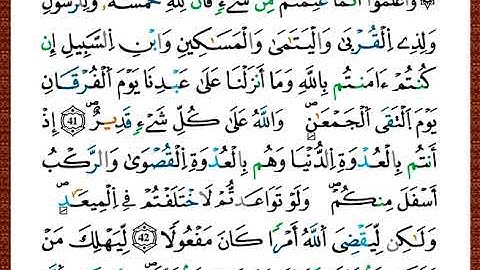 وَٱعْلَمُوٓا۟ أَنَّمَا غَنِمْتُم مِّن شَىْءٍ فَأَنَّ لِلَّهِ خُمُسَهُۥ وَلِلرَّسُولِ
وَلِذِى ٱلْقُرْبَىٰ وَٱلْيَتَـٰمَىٰ وَٱلْمَسَـٰكِينِ وَٱبْنِ ٱلسَّبِيلِ إِن
كُنتُمْ ءَامَنتُم بِٱللَّهِ وَمَآ أَنزَلْنَا عَلَىٰ عَبْدِنَا يَوْمَ ٱلْفُرْقَانِ
يَوْمَ ٱلْتَقَى ٱلْجَمْعَانِ ۗ وَٱللَّهُ عَلَىٰ كُلِّ شَىْءٍ قَدِيرٌ 41 إِذْ
أَنتُم بِٱلْعُدْوَةِ ٱلدُّنْيَا وَهُم بِٱلْعُدْوَةِ ٱلْقُصْوَىٰ وَٱلرَّكْبُ
أَسْفَلَ مِنكُمْ ۚ وَلَوْ تَوَاعَدتُّمْ لَٱخْتَلَفْتُمْ فِى ٱلْمِيعَـٰدِ ۙ
وَلَـٰكِن لِّيَقْضِىَ ٱللَّهُ أَمْرًا كَانَ مَفْعُولًا 42 لِّيَهْلِكَ مَنْ